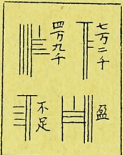 七万二千
四万九千
盈
不足